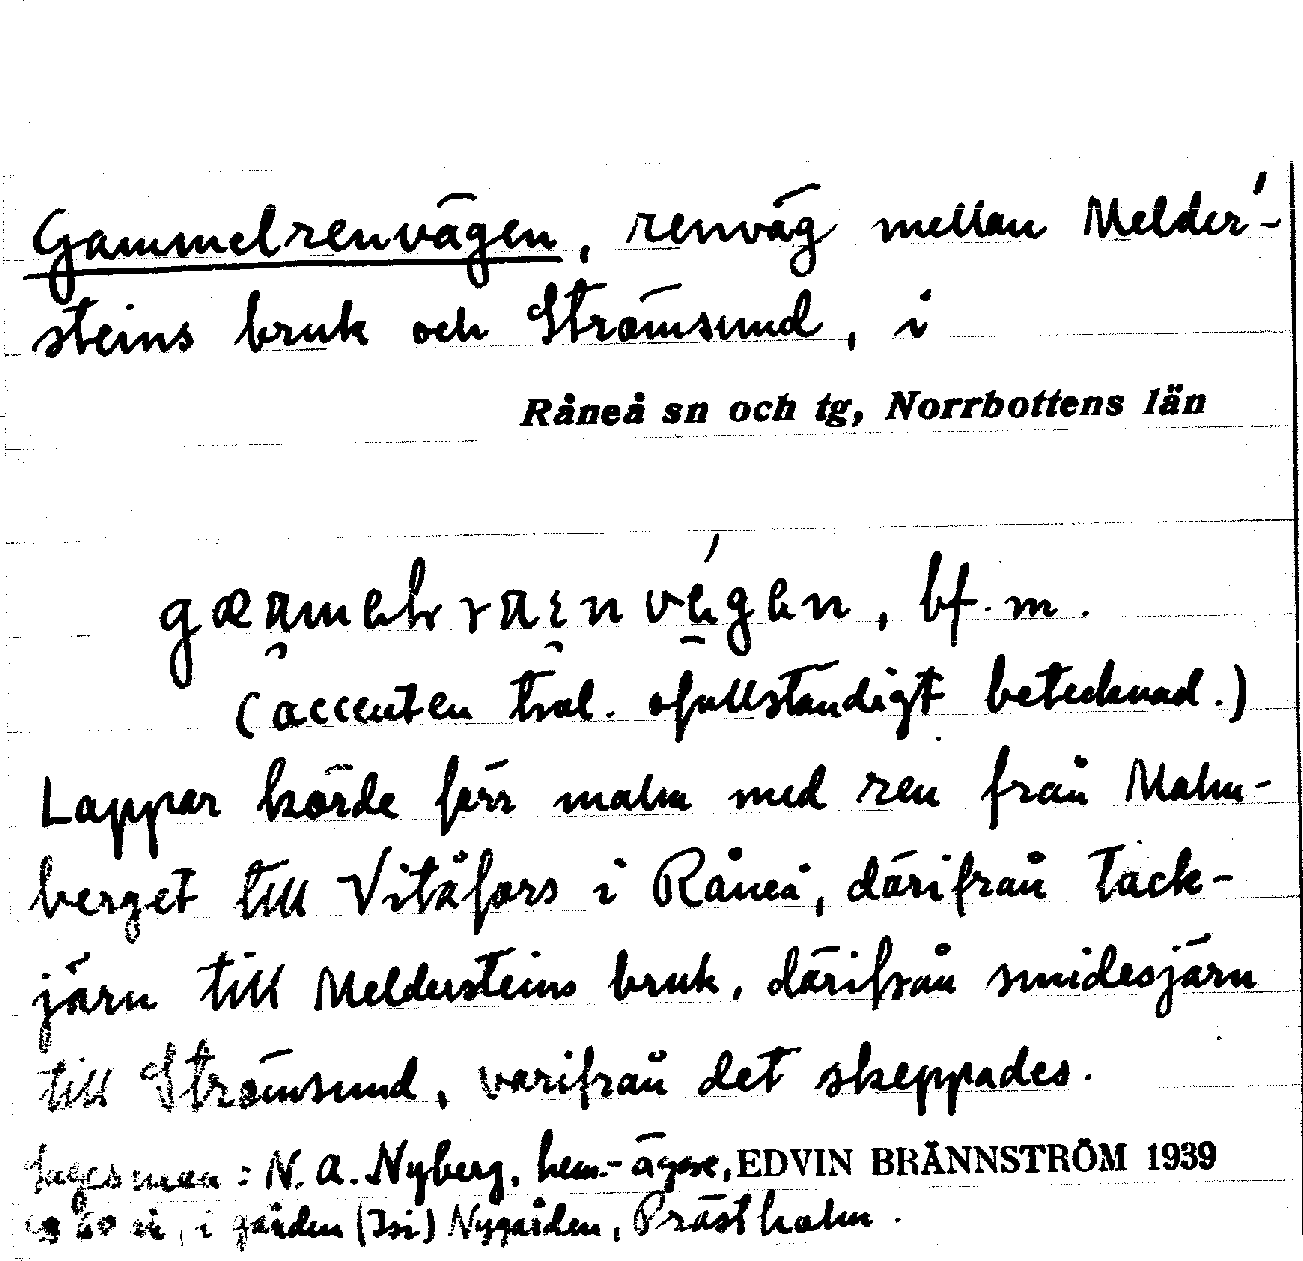 Gammelrenvägen, renväg mellan Melder-
steins bruk och Strömsund, i
Råneå sn och tg, Norrbottens län
bf. m.
(accenten trol. ofullständigt betecknad.)
Lappar körde förr malm med ren från Malm-
berget till Vitåfors i Råneå, därifrån tack-
järn till Meldersteins bruk, därifrån smidesjärn
till Strömsund, varifrån det skeppades.
Sagesman: N. A. Nyberg, hem.-ägare, EDVIN BRÄNNSTRÖM 1939
60 år, i gården (Isi) Nygården, Prästholm.